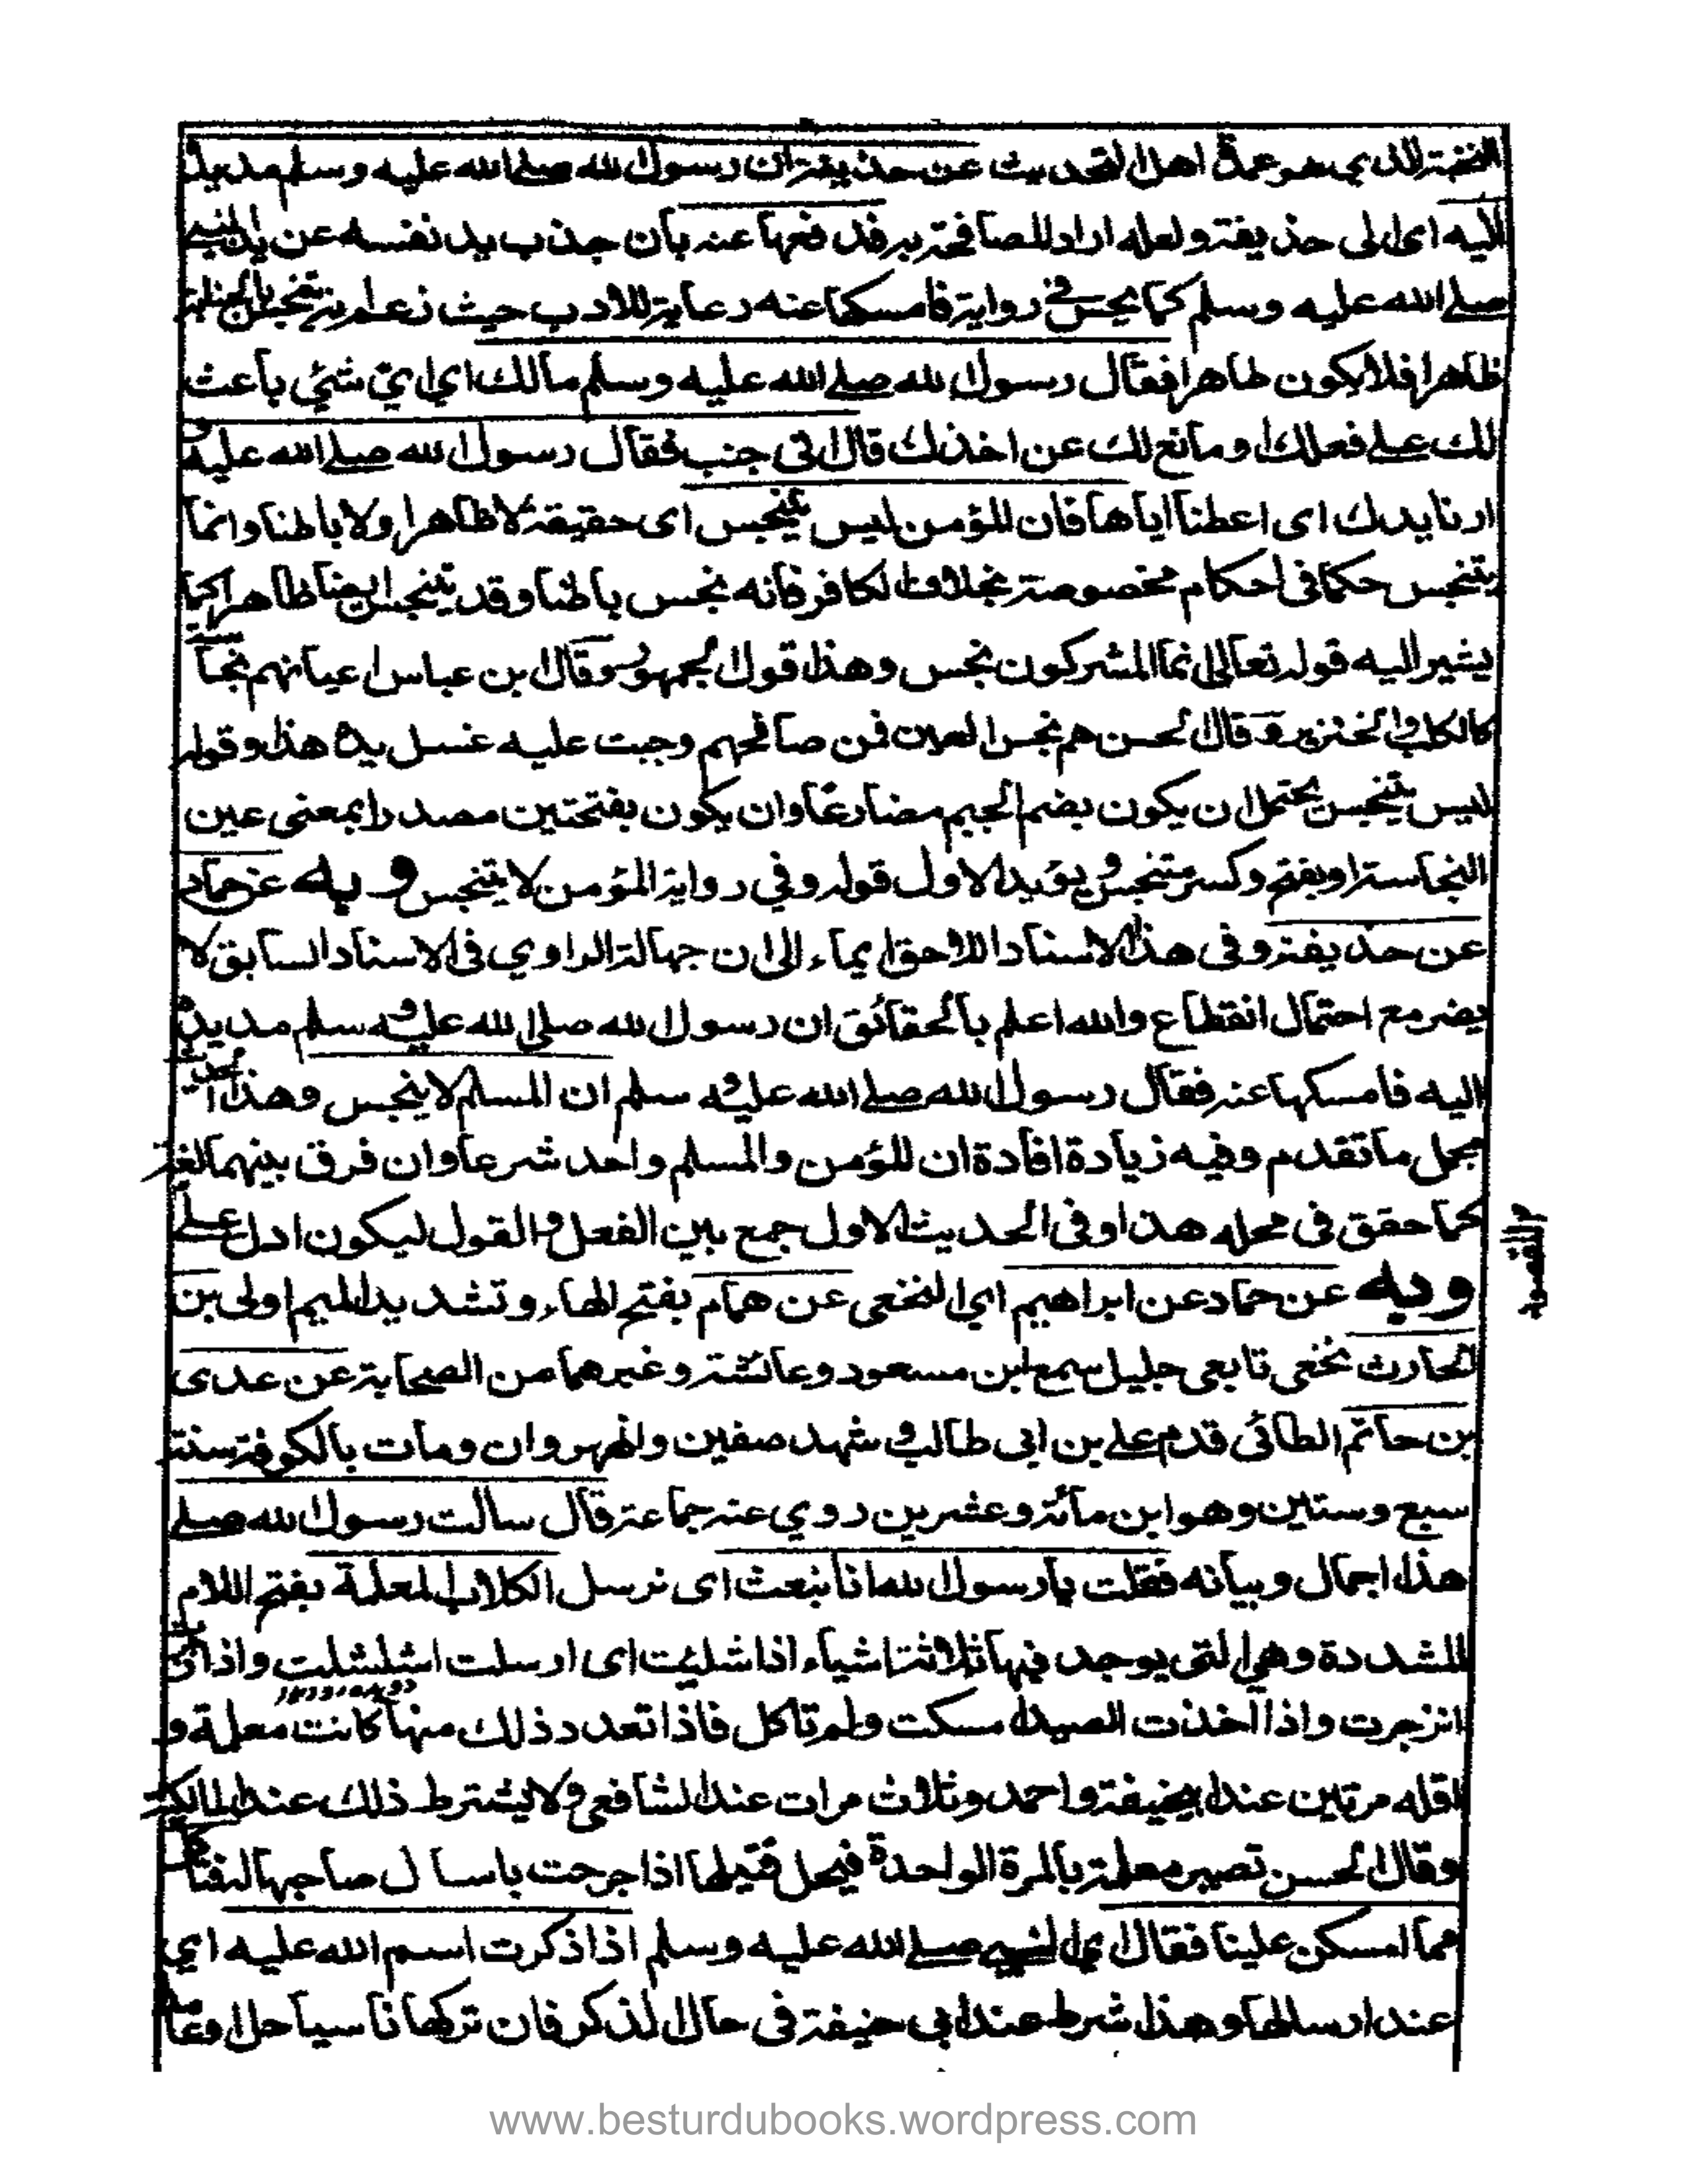 الذي هو عمدة اهل التحديث عن حذيفة ان رسول الله صلى الله عليه وسلم مد يده
اليه اى الى حذيفة ولعله اراد المصافحة به فدفعها عنه بان جذب يد نفسه عن يد النبي
صلى الله عليه وسلم كما يجئ في رواية فامسكها عنه رعاية للادب حيث زعم انه تنجس بالجنابة
ظاهرا فلا يكون طاهرا فقال رسول الله صلى الله عليه وسلم مالك اي اي شئ باعث
لك على فعلك او مانع لك عن اخذك قال اني جنب فقال رسول الله صلى الله عليه و
ارنا يدك اى اعطنا اياها فان المؤمن ليس ينجس اى حقيقة لا ظاهرا ولا باطنا وانما
يتنجس حكما فى احكام مخصوصة بخلاف الكافر فانه نجس باطنا وقد يتنجس ايضا ظاهرا كما
يشير اليه قوله تعالى انما المشركون نجس وهذا قول الجمهور وقال ابن عباس اعيانهم نجسة
كالكلب والخنزير وقال الحسن هم نجس العين فمن صافحهم وجبت عليه غسل يده هذا وقوله
ليس ينجس يحتمل ان يكون بضم الجيم مضارعا وان يكون بفتحتين مصدرا بمعنى عين
النجاسة او بفتح وكسر متنجس ويؤيد الاول قوله وفي رواية المؤمن لا ينجس وبه عن حماد
عن حذيفة وفى هذا الاسناد اللاحق ايماء الى ان جهالة الراوي فى الاسناد السابق لا
يضر مع احتمال انقطاع والله اعلم بالحقائق ان رسول الله صلى الله عليه وسلم مد يده
اليه فامسكها عنه فقال رسول الله صلى الله عليه وسلم ان المسلم لا ينجس وهذا الحديث
مجمل ما تقدم وفيه زيادة افادة ان المؤمن والمسلم واحد شرعا وان فرق بينهما لغة
كما حقق فى محله هذا وفى الحديث الاول جمع بين الفعل والقول ليكون ادل على
والمقصود
وبه عن حماد عن ابراهيم اي النخعى عن همام بفتح الهاء وتشديد الميم اولى بن
الحارث نخعى تابعى جليل سمع ابن مسعود وعائشة وغيرهما من الصحابة عن عدى
بن حاتم الطائى قدم على بن ابى طالب و شهد صفين والنهروان ومات بالكوفة سنة
سبع وستين وهو ابن مائة وعشرين روي عنه جماعة قال سالت رسول الله صلى
هذا اجمال وبيانه فقلت يا رسول الله انا نبعث اى نرسل الكلاب المعلمة بفتح اللام
المشددة وهى التى يوجد فيها ثلاثة اشياء اذا اشليت اى ارسلت استشلت واذا زجرت
انزجرت واذا اخذت الصيد امسكت ولم تاكل فاذا تعدد ذلك منها كانت معلمة و
اقله مرتين عند ابيحنيفة واحمد وثلاث مرات عند الشافعى ولا يشترط ذلك عند المالكية
وقال الحسن تصير معلمة بالمرة الواحدة فيحل قتيلها اذا جرحت بارسال صاحبها لها فناكل
مما امسكن علينا فقال اي النبي صلى الله عليه وسلم اذا ذكرت اسم الله عليه اي
عند ارسالها وهذا شرط عند ابى حنيفة فى حال الذكر فان تركها ناسيا حل او عامدا
www.besturdubooks.wordpress.com